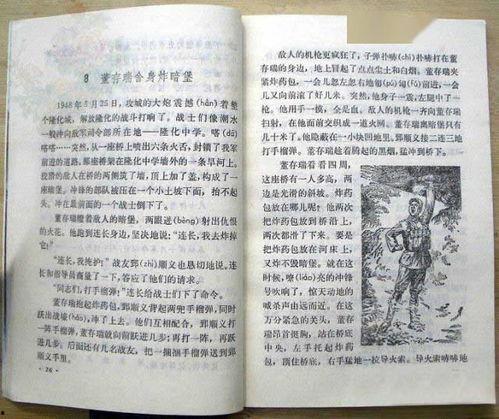 8 董存瑞舍身炸暗堡
1948年5月25日，攻城的大炮震撼（hàn）着整
个隆化城，解放隆化的战斗打响了。战士们像潮水
一般冲向敌军司令部所在地——隆化中学。喀（dā）
喀……突然，从一座桥上喷出六条火舌，封锁了我军
前进的道路。那座桥架在隆化中学墙外的一条旱河上。
狡猾的敌人在桥的两侧筑了墙，顶上加了盖，构成了
一座暗堡。冲锋的部队被压在一个小土坡下面，抬不起
头。冲在最前面的一个战士倒下了。
董存瑞瞪着敌人的暗堡，两眼迸（bèng）射出仇恨
的火花。他跑到连长身边，坚决地说：“连长，我去炸掉
它！”
“连长，我掩护！”战友郅（zhì）顺义也恳切地说。连
长和指导员商量了一下，答应了他们的请求。
“同志们，打手榴弹！”连长给战士们下了命令。
董存瑞抱起炸药包，郅顺义背起两兜手榴弹，同时
跃出战壕（háo），冲了上去。他们互相配合，郅顺义打一
阵手榴弹，董存瑞就向前跃进几步；再打一阵，再跃
进几步。后面还有几名战友，把一捆捆手榴弹送到郅
顺义手里。
26
敌人的机枪更疯狂了，子弹扑哧（chī）扑哧打在董
存瑞的身边，地上冒起了点点尘土和白烟。董存瑞夹
紧炸药包，一会儿忽左忽右地匍（pú）匐（fú）前进，一会
儿又向前滚了好几米。突然，他身子一震，左腿中了一
枪。他用手一摸，全是血。敌人的机枪一齐向董存瑞
扫射，在他面前交织成一道火网。董存瑞离暗堡只有
几十米了。他隐蔽在一小块凹地里。郅顺义接二连三地
打手榴弹。董存瑞趁着腾起的黑烟，猛冲到桥下。
董存瑞看看四周，
这座桥有一人多高，两
边是光滑的斜坡。炸药
包放在哪儿呢？他两次
把炸药包放到桥沿上，
两次都滑了下来。要是
把炸药包放在河床上，
又炸不毁暗堡。就在这
时候，嘹（liáo）亮的冲锋
号吹响了，惊天动地的
喊杀声由远而近。在这
万分紧急的关头，董存
瑞昂首挺胸，站在桥底
中央，左手托起炸药
包，顶住桥底，右手猛地一拉导火索。导火索哧哧地